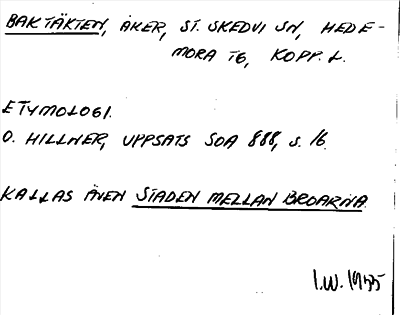 BAKTÄKTEN, ÅKER, ST. SKEDVI SN, HEDE-
MORA TG, KOPP. L.
ETYMOLOGI.
O. HILLNER, UPPSATS SOA 888, S. 16.
KALLAS ÄVEN STADEN MELLAN BROARNA.
I.W. 1955